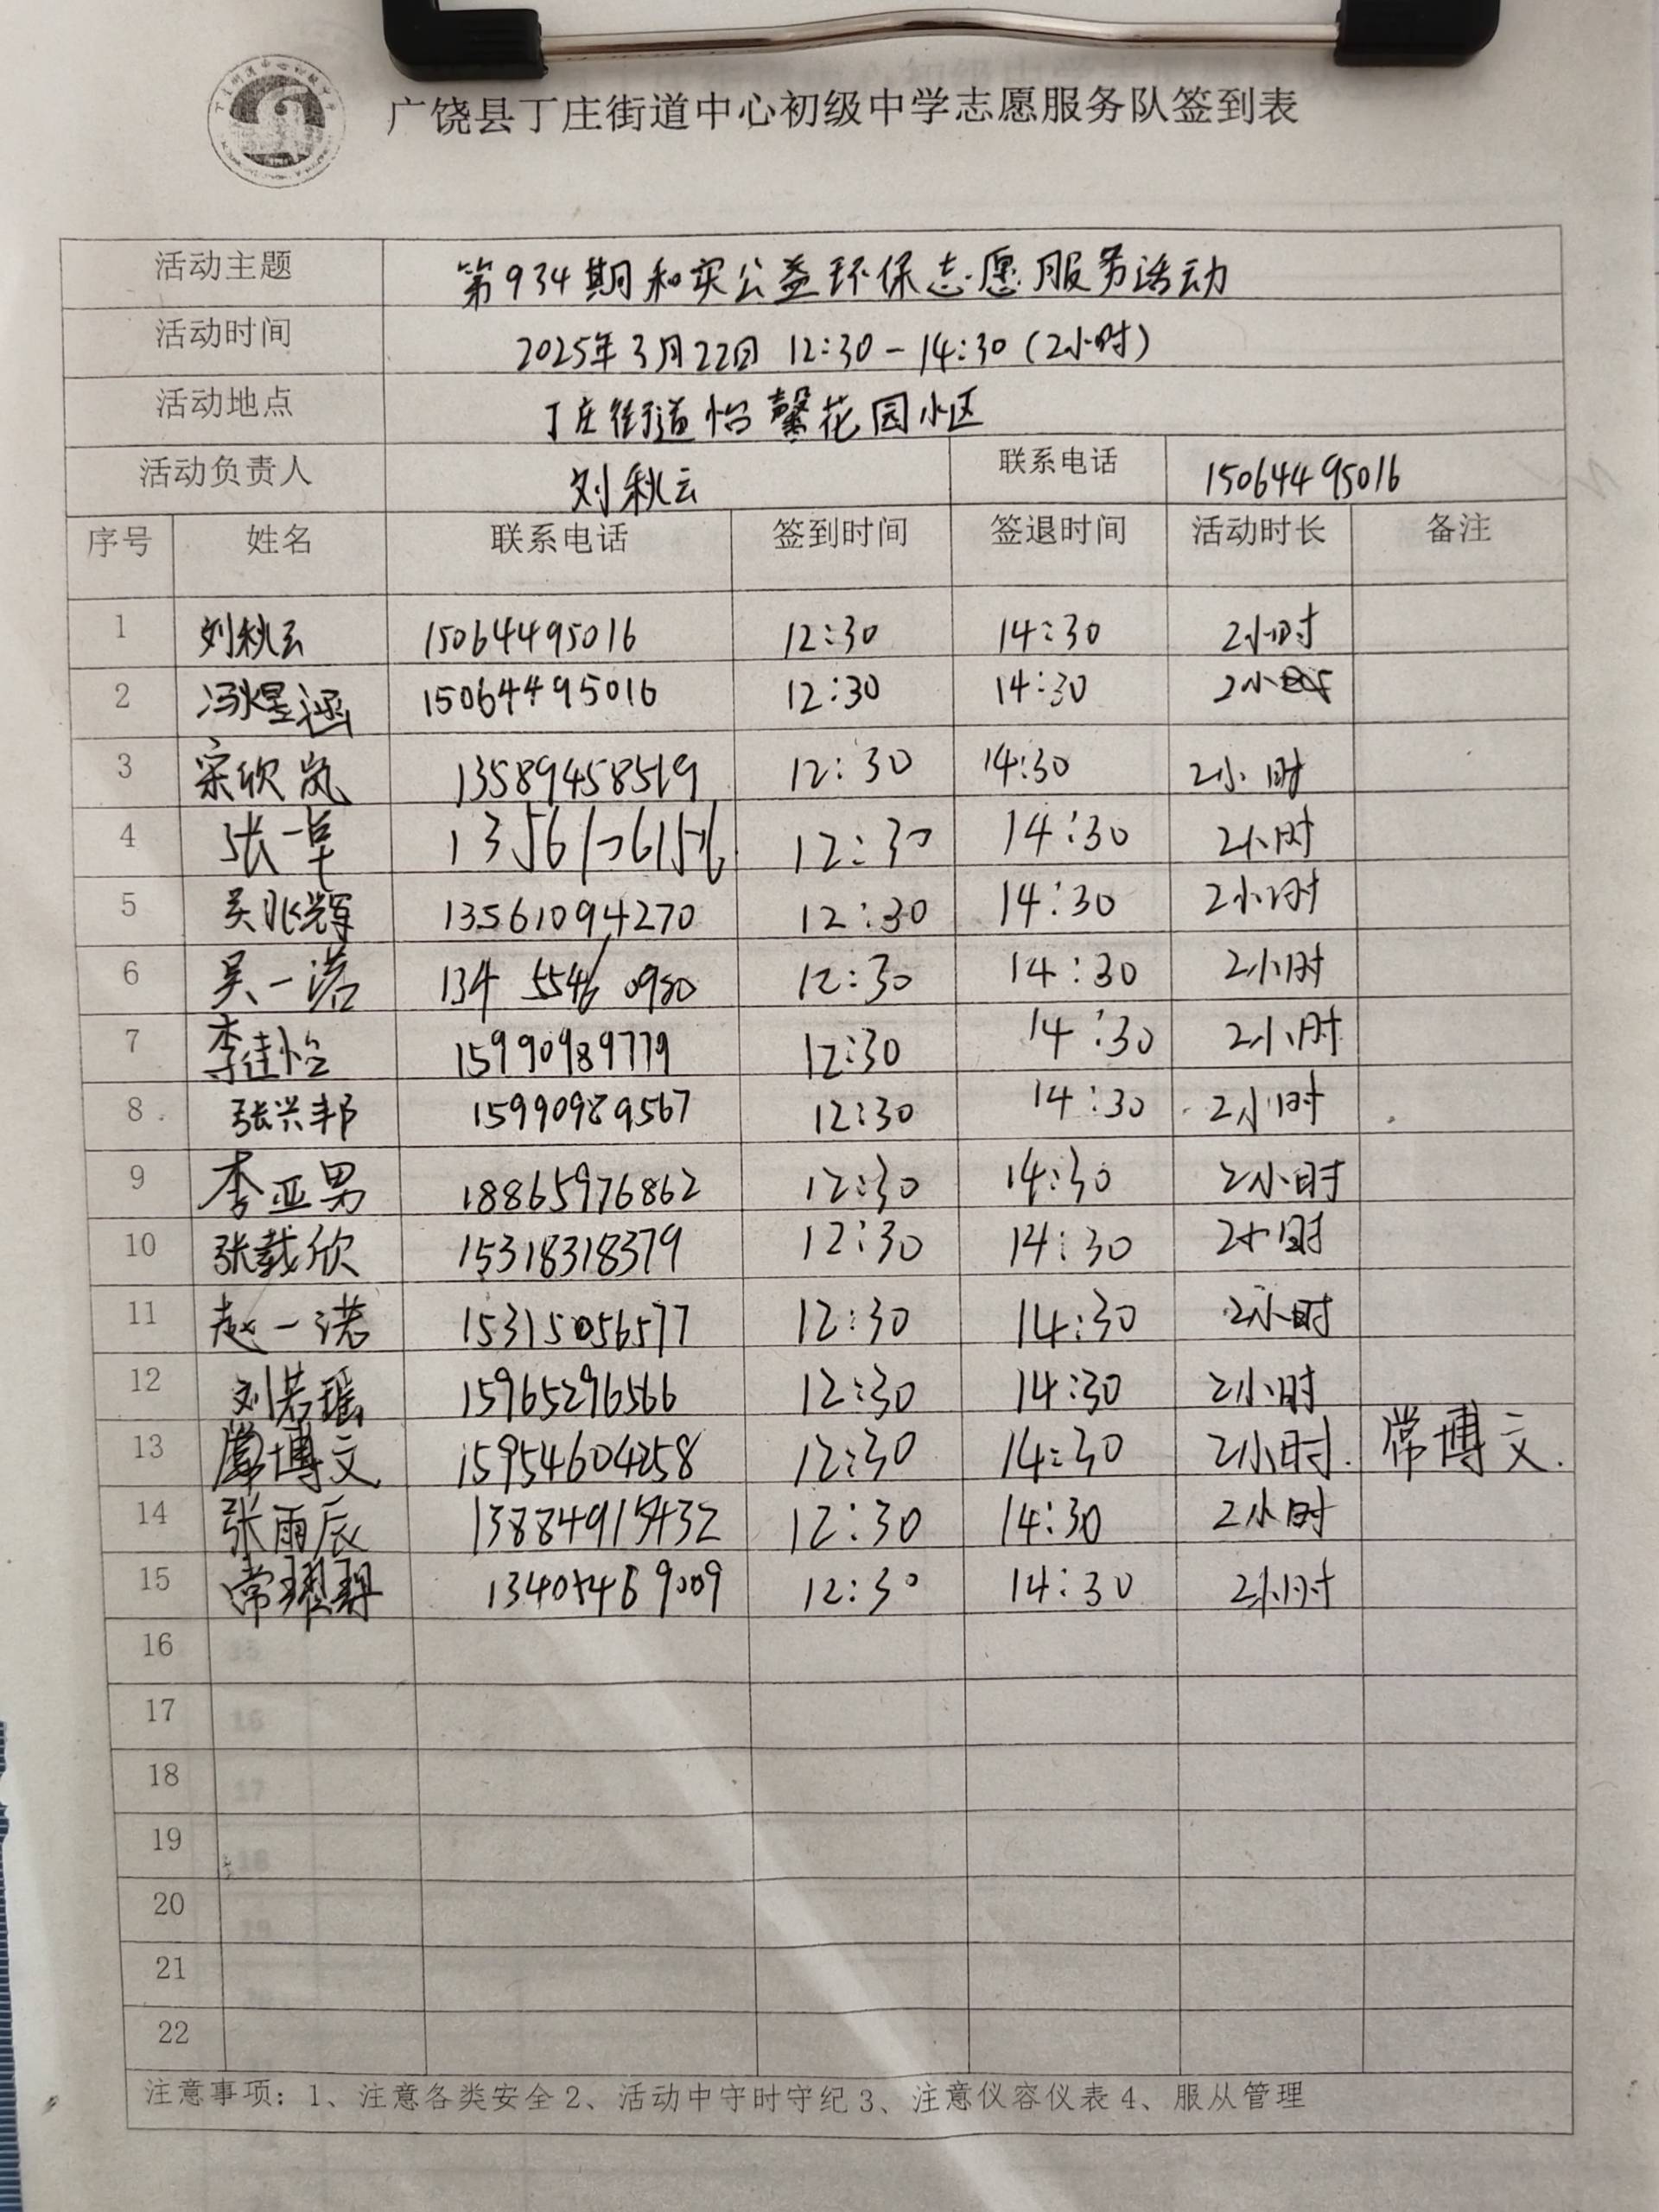 广饶县丁庄街道中心初级中学志愿服务队签到表
活动主题 第934期和实公益环保志愿服务活动
活动时间 2025年3月22日 12:30-14:30(2小时)
活动地点 丁庄街道怡馨花园小区
活动负责人 刘秋云 联系电话 15064495016
序号 姓名 联系电话 签到时间 签退时间 活动时长 备注
1 刘秋云 15064495016 12:30 14:30 2小时
2 冯煜涵 15064495016 12:30 14:30 2小时
3 宋欣岚 13589458519 12:30 14:30 2小时
4 张一卓 12:30 14:30 2小时
5 吴兆辉 13561094270 12:30 14:30 2小时
6 吴一诺 134 5546 0980 12:30 14:30 2小时
7 李佳怡 15990989779 12:30 14:30 2小时
8 张兴邦 15990989567 12:30 14:30 2小时
9 李亚男 18865976862 12:30 14:30 2小时
10 张载欣 15318318379 12:30 14:30 2小时
11 赵一诺 15315056577 12:30 14:30 2小时
12 刘若瑶 15965296566 12:30 14:30 2小时
13 常博文 15954604258 12:30 14:30 2小时. 常博文.
14 张雨辰 13884915432 12:30 14:30 2小时
15 常 13405469009 12:30 14:30 2小时
16
17
18
19
20
21
22
注意事项：1、注意各类安全2、活动中守时守纪3、注意仪容仪表4、服从管理